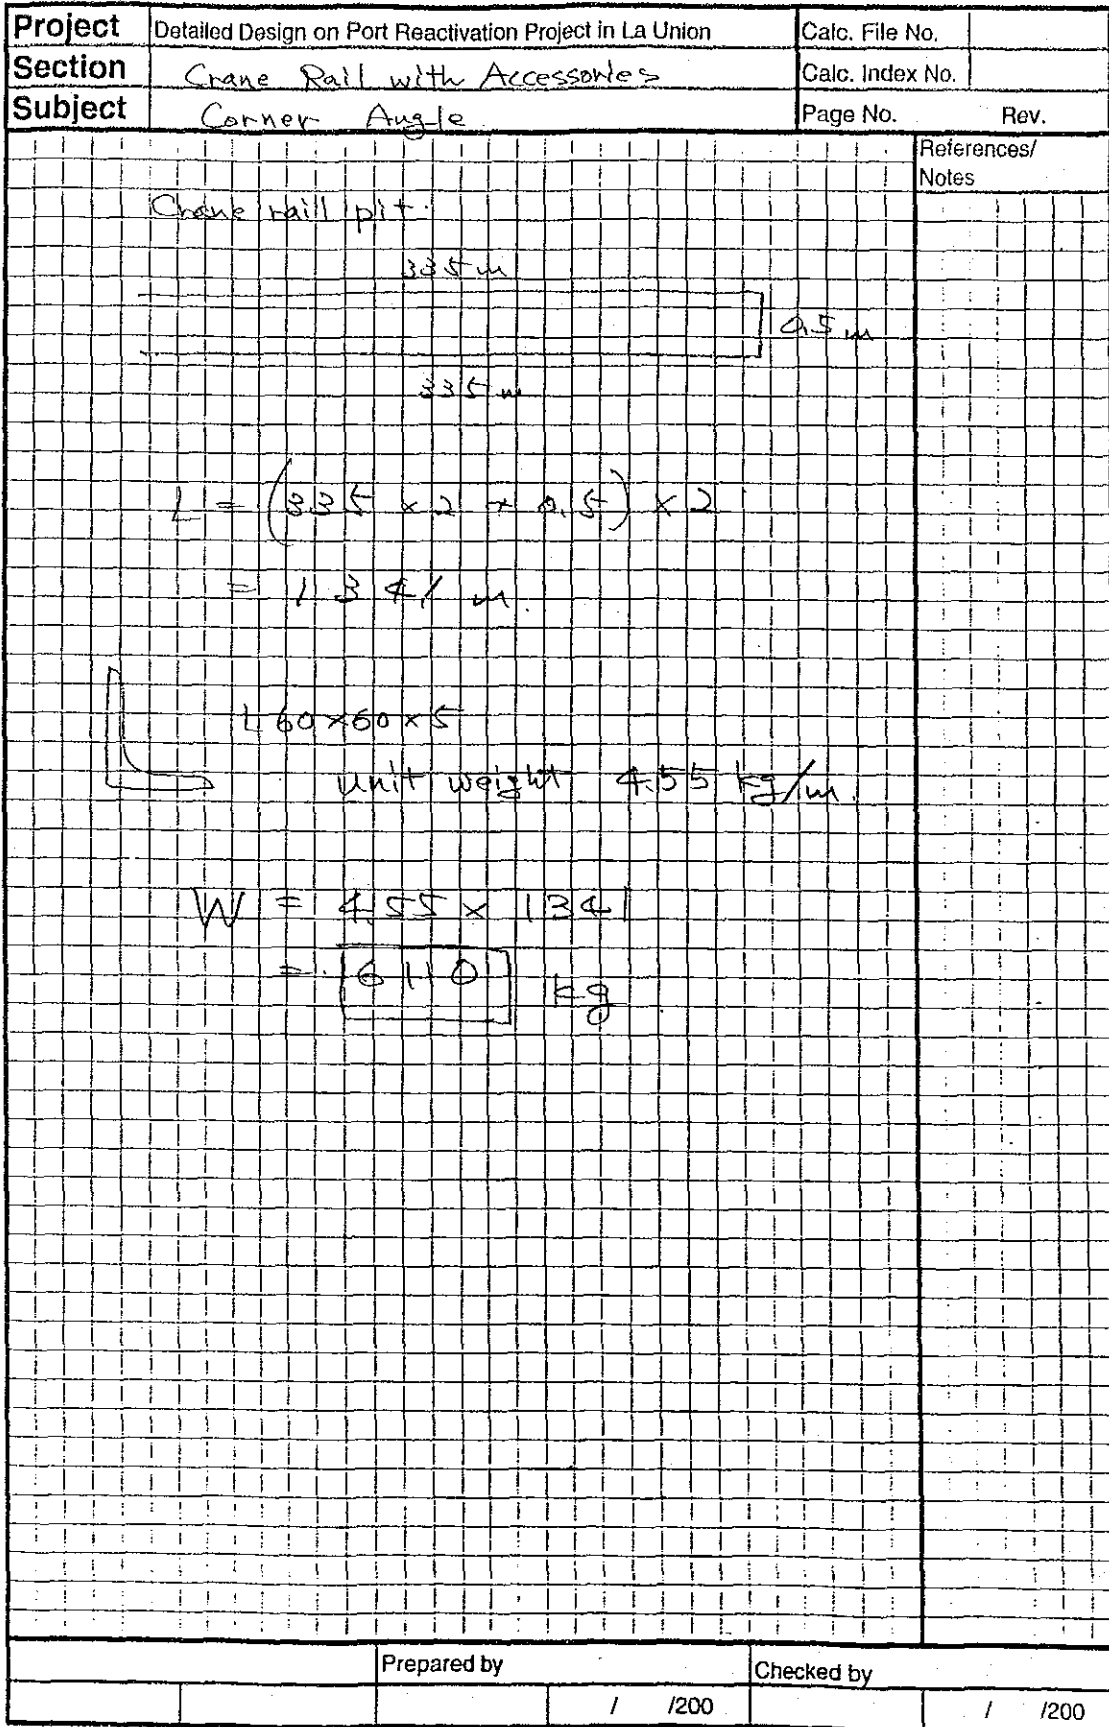 Project Detailed Design on Port Reactivation Project in La Union Calc. File No.
Section Crane Rail with Accessories Calc. Index No.
Subject Corner Angle Page No. Rev.
References/
Notes
Crane rail pit.
335 m
0.5 m
335 m
L = (335 × 2 + 0.5) × 2
= 1341 m.
L 60×60×5
unit weight 4.55 kg/m.
W = 4.55 × 1341
= 6110 kg
Prepared by Checked by
/ /200 / /200